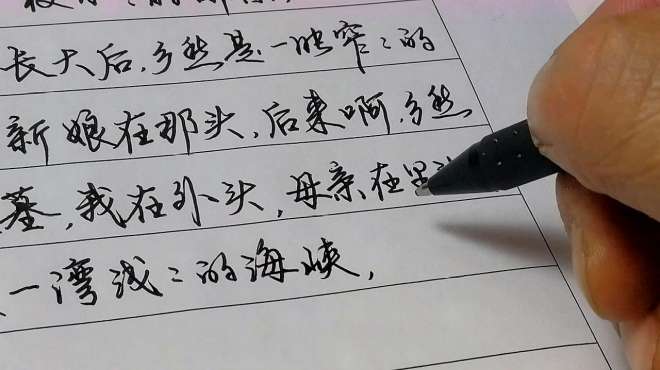 长大后,乡愁是一张窄〻的
新娘在那头,后来啊,乡愁
墓,我在外头,母亲在里
一湾浅〻的海峡,